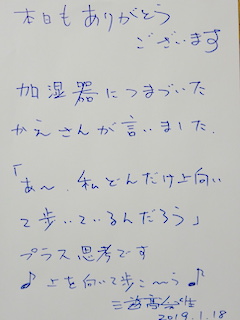 本日も ありがとう
ございます
加湿器につまづいた
かえさんが言いました.
「あ〜.私どんだけ上向い
て歩いているんだろう」
プラス思考です
♪上を向いて歩こ〜う♪
2019.1.18